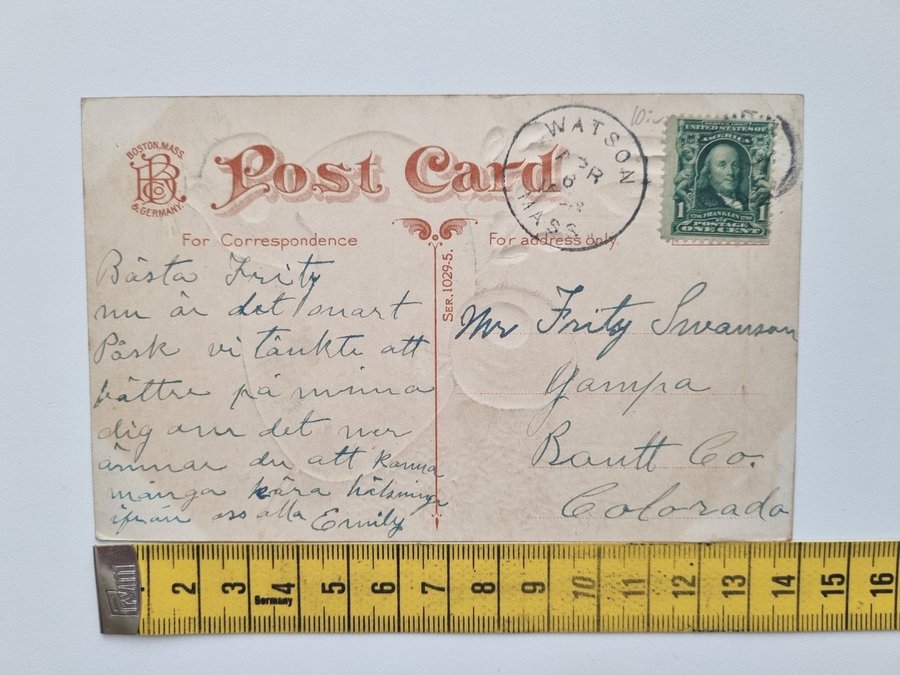 BOSTON, MASS.
B Co
& GERMANY.
Post Card
WATSON
APR
6
MASS.
UNITED STATES OF
AMERICA
1 FRANKLIN 1
POSTAGE
ONE CENT
For Correspondence
For address only.
SER. 1029-5.
Bästa Frity
nu är det snart
Påsk vi tänkte att
bättre på minna
dig om det ner
ämnar du att komma
många kära hälsningar
ifrån oss alla Emily
Mr Frity Swanson
Yampa
Routt Co.
Colorado
2 3 4 5 6 7 8 9 10 11 12 13 14 15 16
Germany